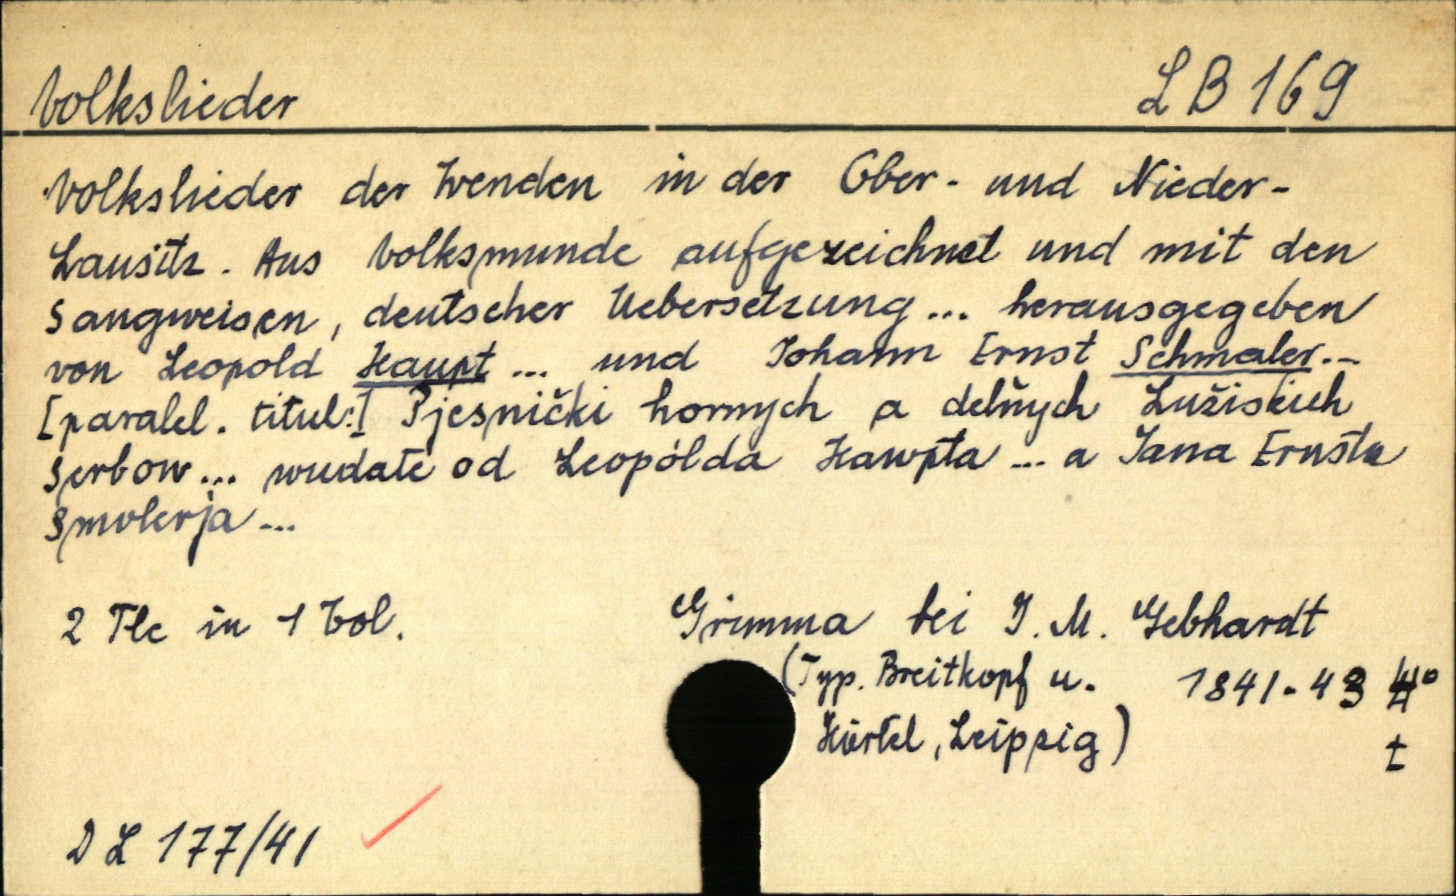 Volkslieder LB 169
Volkslieder der Wenden in der Ober- und Nieder-
Lausitz. Aus Volksmunde aufgezeichnet und mit den
Sangweisen, deutscher Uebersetzung ... herausgegeben
von Leopold Haupt ... und Johann Ernst Schmaler...
[paralel. titul:] Pjesnički hornych a delnych Lužiskich
Serbow ... wudate od Leopólda Hawpta ... a Jana Ernsta
Smolerja ...
2 Tle in 1 Vol. Grimma bei J. M. Gebhardt
(Typ. Breitkopf u. 1841-43 4°
Härtel, Leipzig) t
DL 177/41